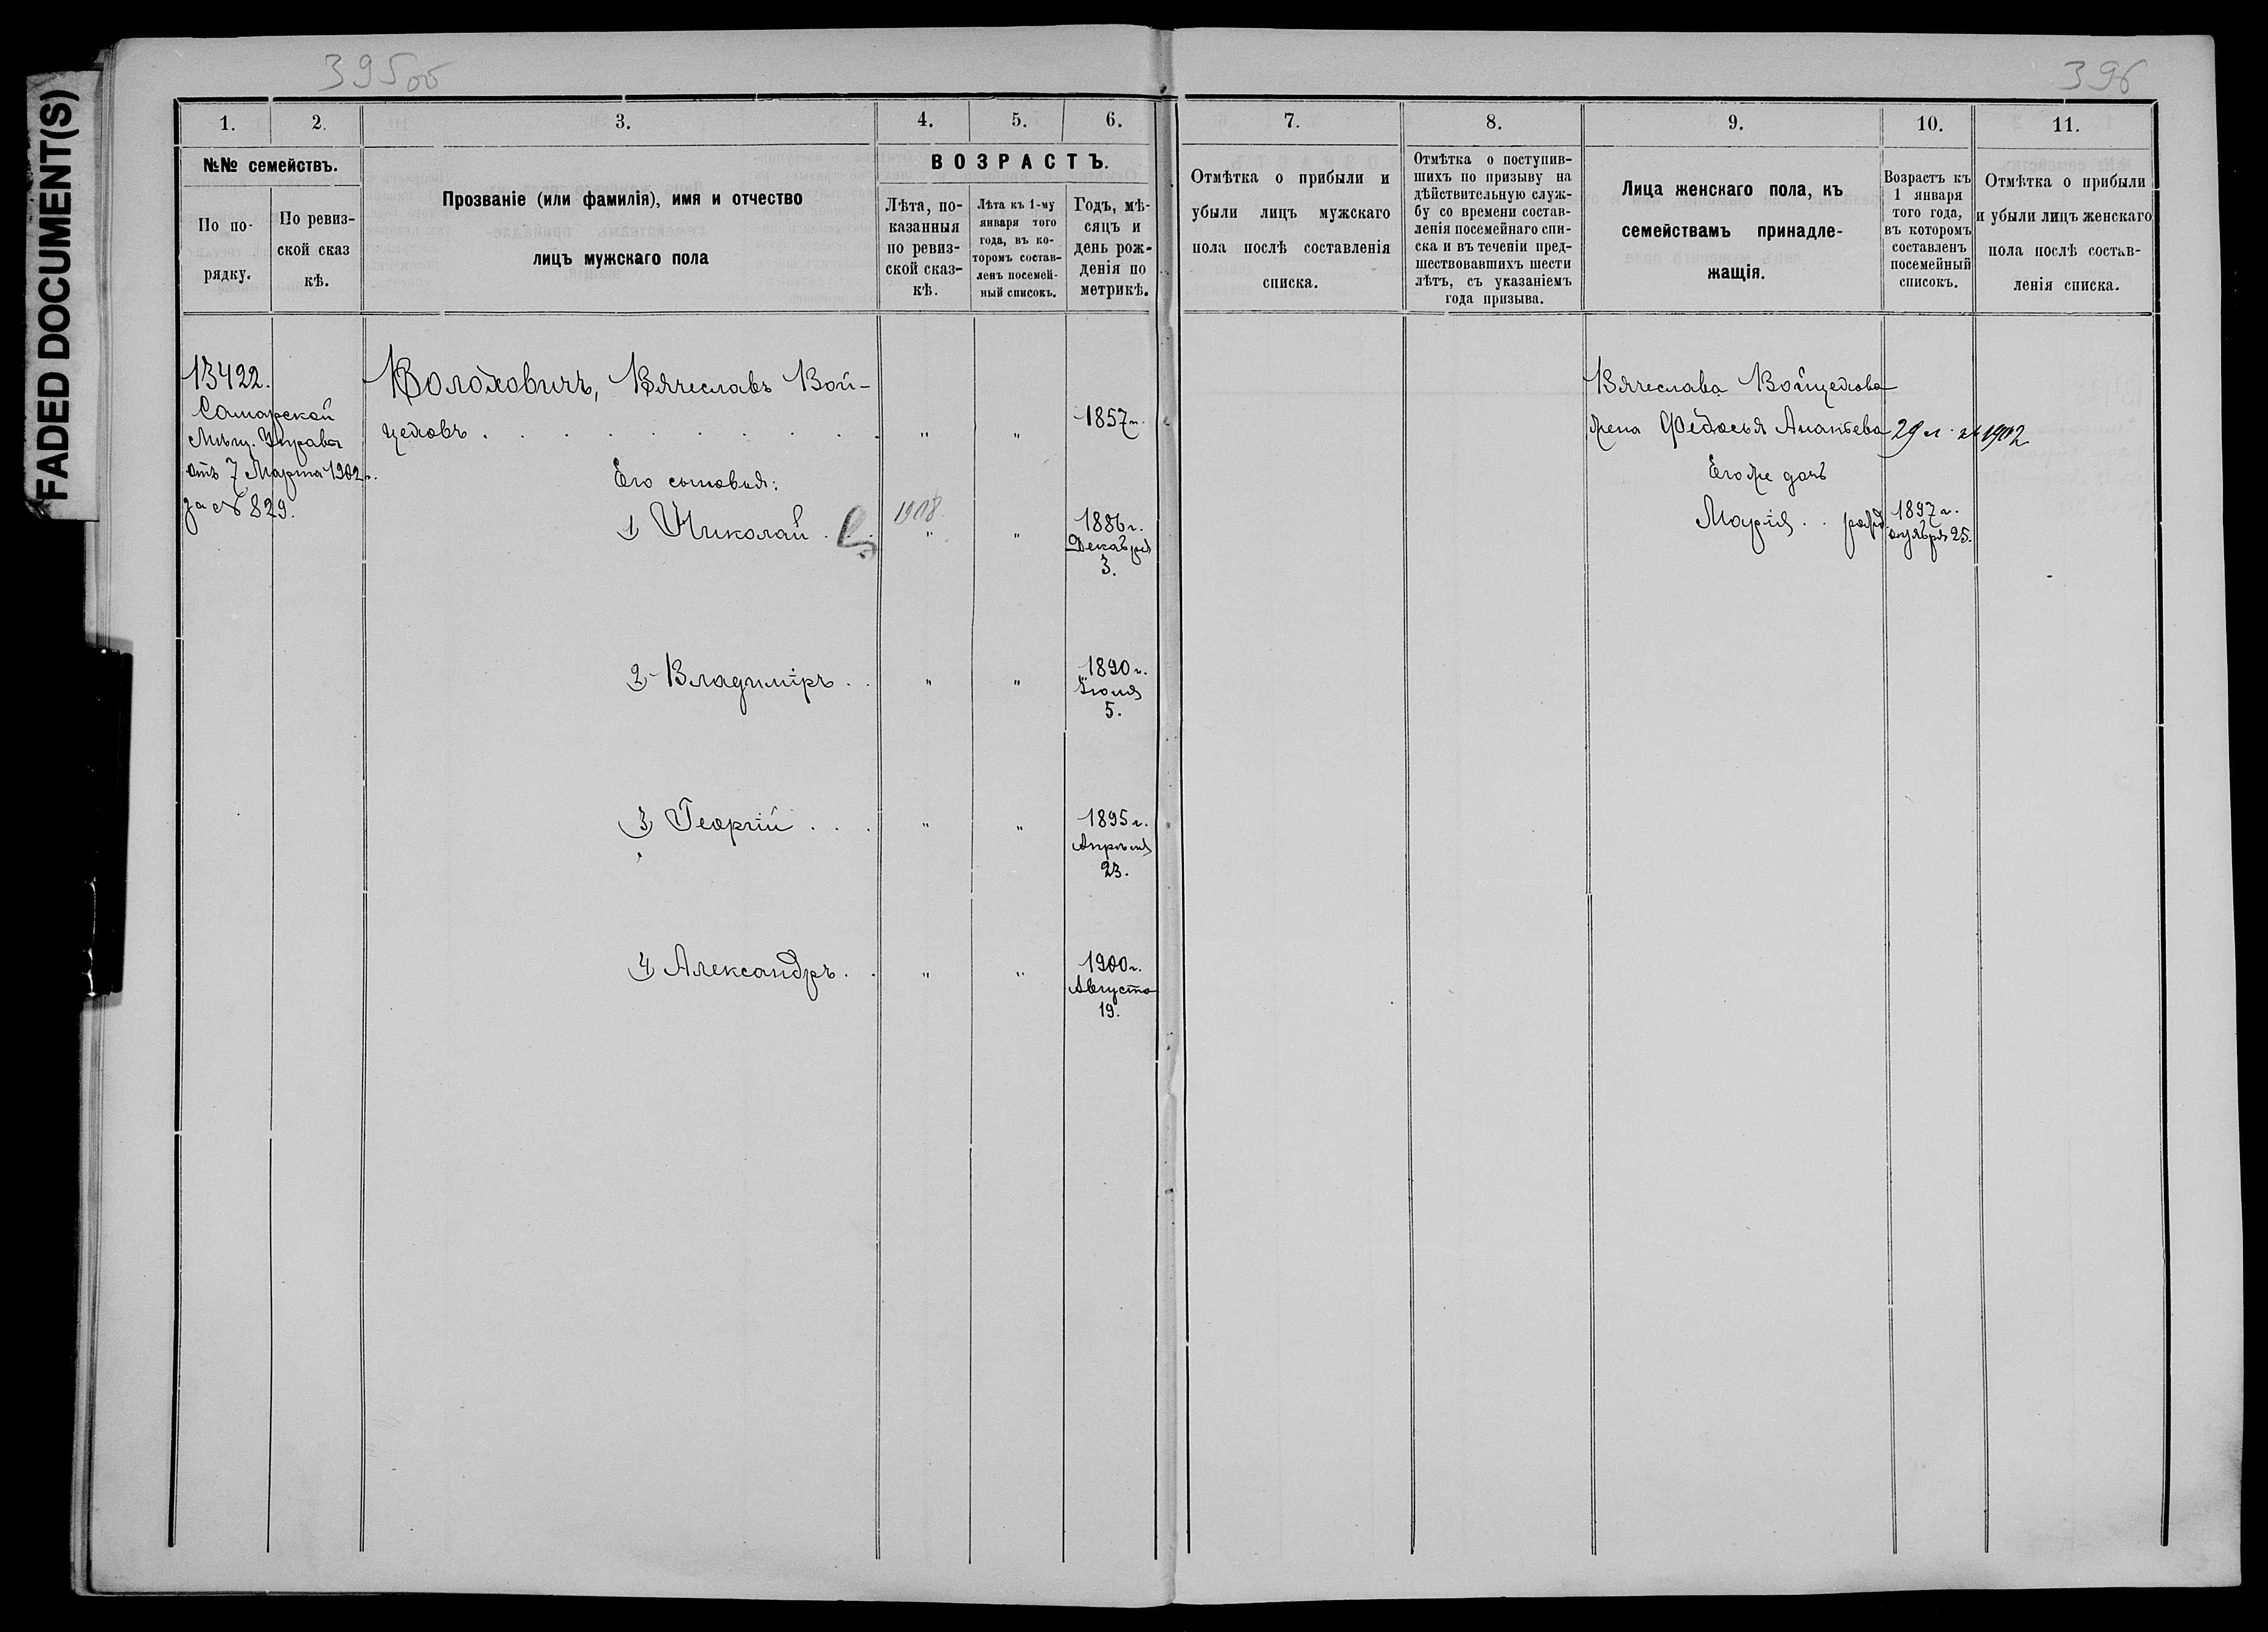 FADED DOCUMENT(S)
395об
396
1. 2. 3. 4. 5. 6. 7. 8. 9. 10. 11.
№№ семействъ.
По по-
рядку.
По ревиз-
ской сказ
кѣ.
Прозваніе (или фамилія), имя и отчество
лицъ мужскаго пола
ВОЗРАСТЪ.
Лѣта, по-
казанныя
по ревиз-
ской сказ-
кѣ.
Лѣта къ 1-му
января того
года, въ ко-
торомъ состав-
ленъ посемей-
ный списокъ.
Годъ, мѣ-
сяцъ и
день рож-
денія по
метрикѣ.
Отмѣтка о прибыли и
убыли лицъ мужскаго
пола послѣ составленія
списка.
Отмѣтка о поступив-
шихъ по призыву на
дѣйствительную служ-
бу со времени состав-
ленія посемейнаго спи-
ска и въ теченіи пред-
шествовавшихъ шести
лѣтъ, съ указаніемъ
года призыва.
Лица женскаго пола, къ
семействамъ принадле-
жащія.
Возрастъ къ
1 января
того года,
въ которомъ
составленъ
посемейный
списокъ.
Отмѣтка о прибыли
и убыли лицъ женскаго
пола послѣ состав-
ленія списка.
13422.
Самарской
Мѣщ. Управы
отъ 7 Марта 1902 г.
за № 829.
Волоховичъ, Вячеславъ Вой-
цеховъ . . . . . . . . . . " " 1857 г.
Его сыновья:
1) Николай . . . 1908 " " 1886 г.
Декабря
3.
2) Владиміръ . . " " 1890 г.
Іюля
5.
3) Георгій . . . " " 1895 г.
Апрѣля
23.
4) Александръ . . " " 1900 г.
Августа
19.
Вячеслава Войцехова
жена Ѳедосья 29 л. 1902
Его же дочь
Марія . . рожд. 1897 г.
25.